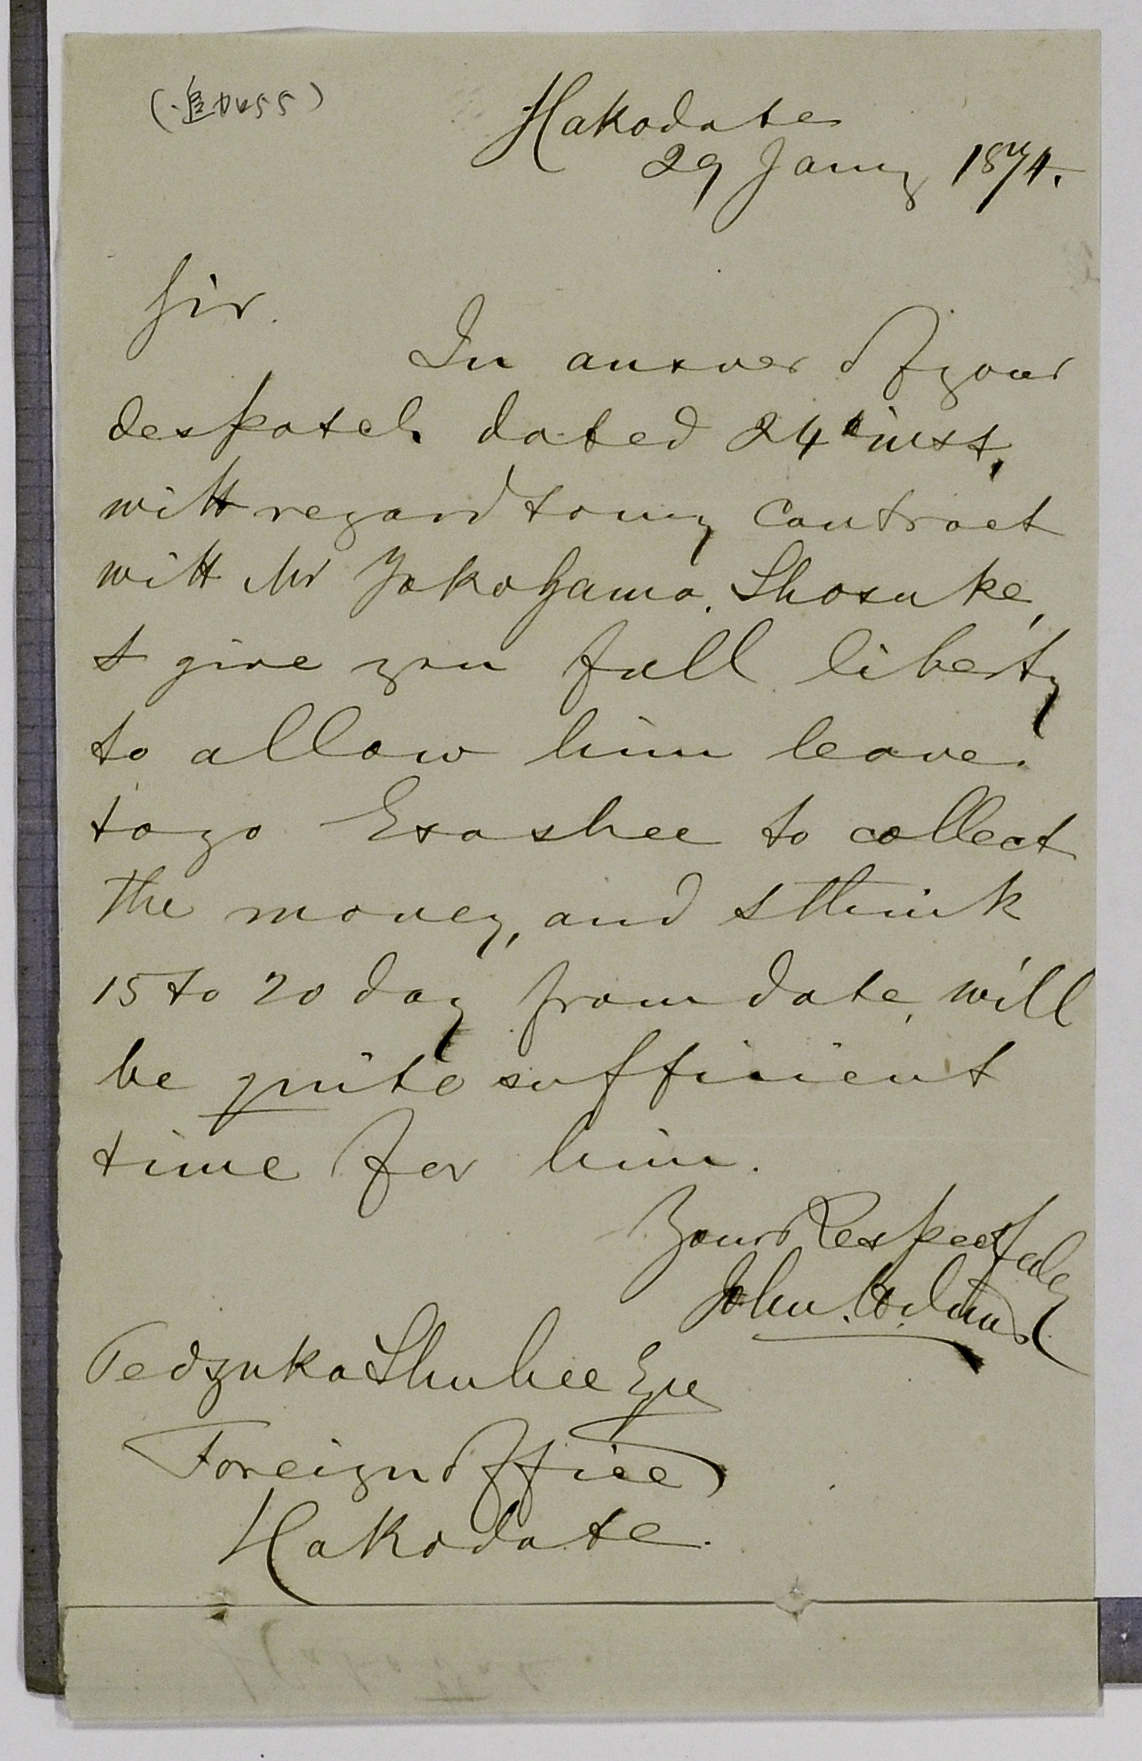 (追加455)
Hakodate
29 Jany 1874.
Sir.
In answer of your
despatch dated 24th inst,
with regard to my contract
with Mr Yokoyama. Shosuke,
I give you full liberty
to allow him leave.
to go Esashee to collect
the money, and I think
15 to 20 day from date, will
be quite sufficient
time for him.
Yours Respectfuly
John
Tedzuka Shuhee Eqre
Foreign Office
Hakodate.